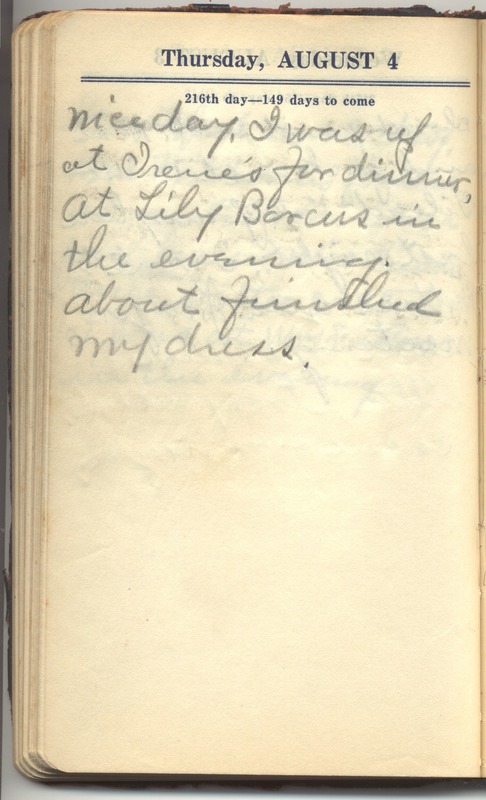 Thursday, AUGUST 4
216th day—149 days to come
nice day. I was up
at Irene's for dinner,
at Lily Barcus in
the evening.
about finished
my dress.